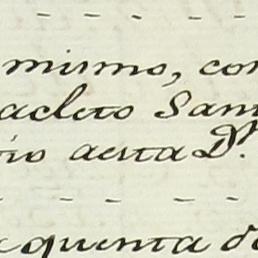 mismo, con
acleto San
rio aesta Dr.
quenta de